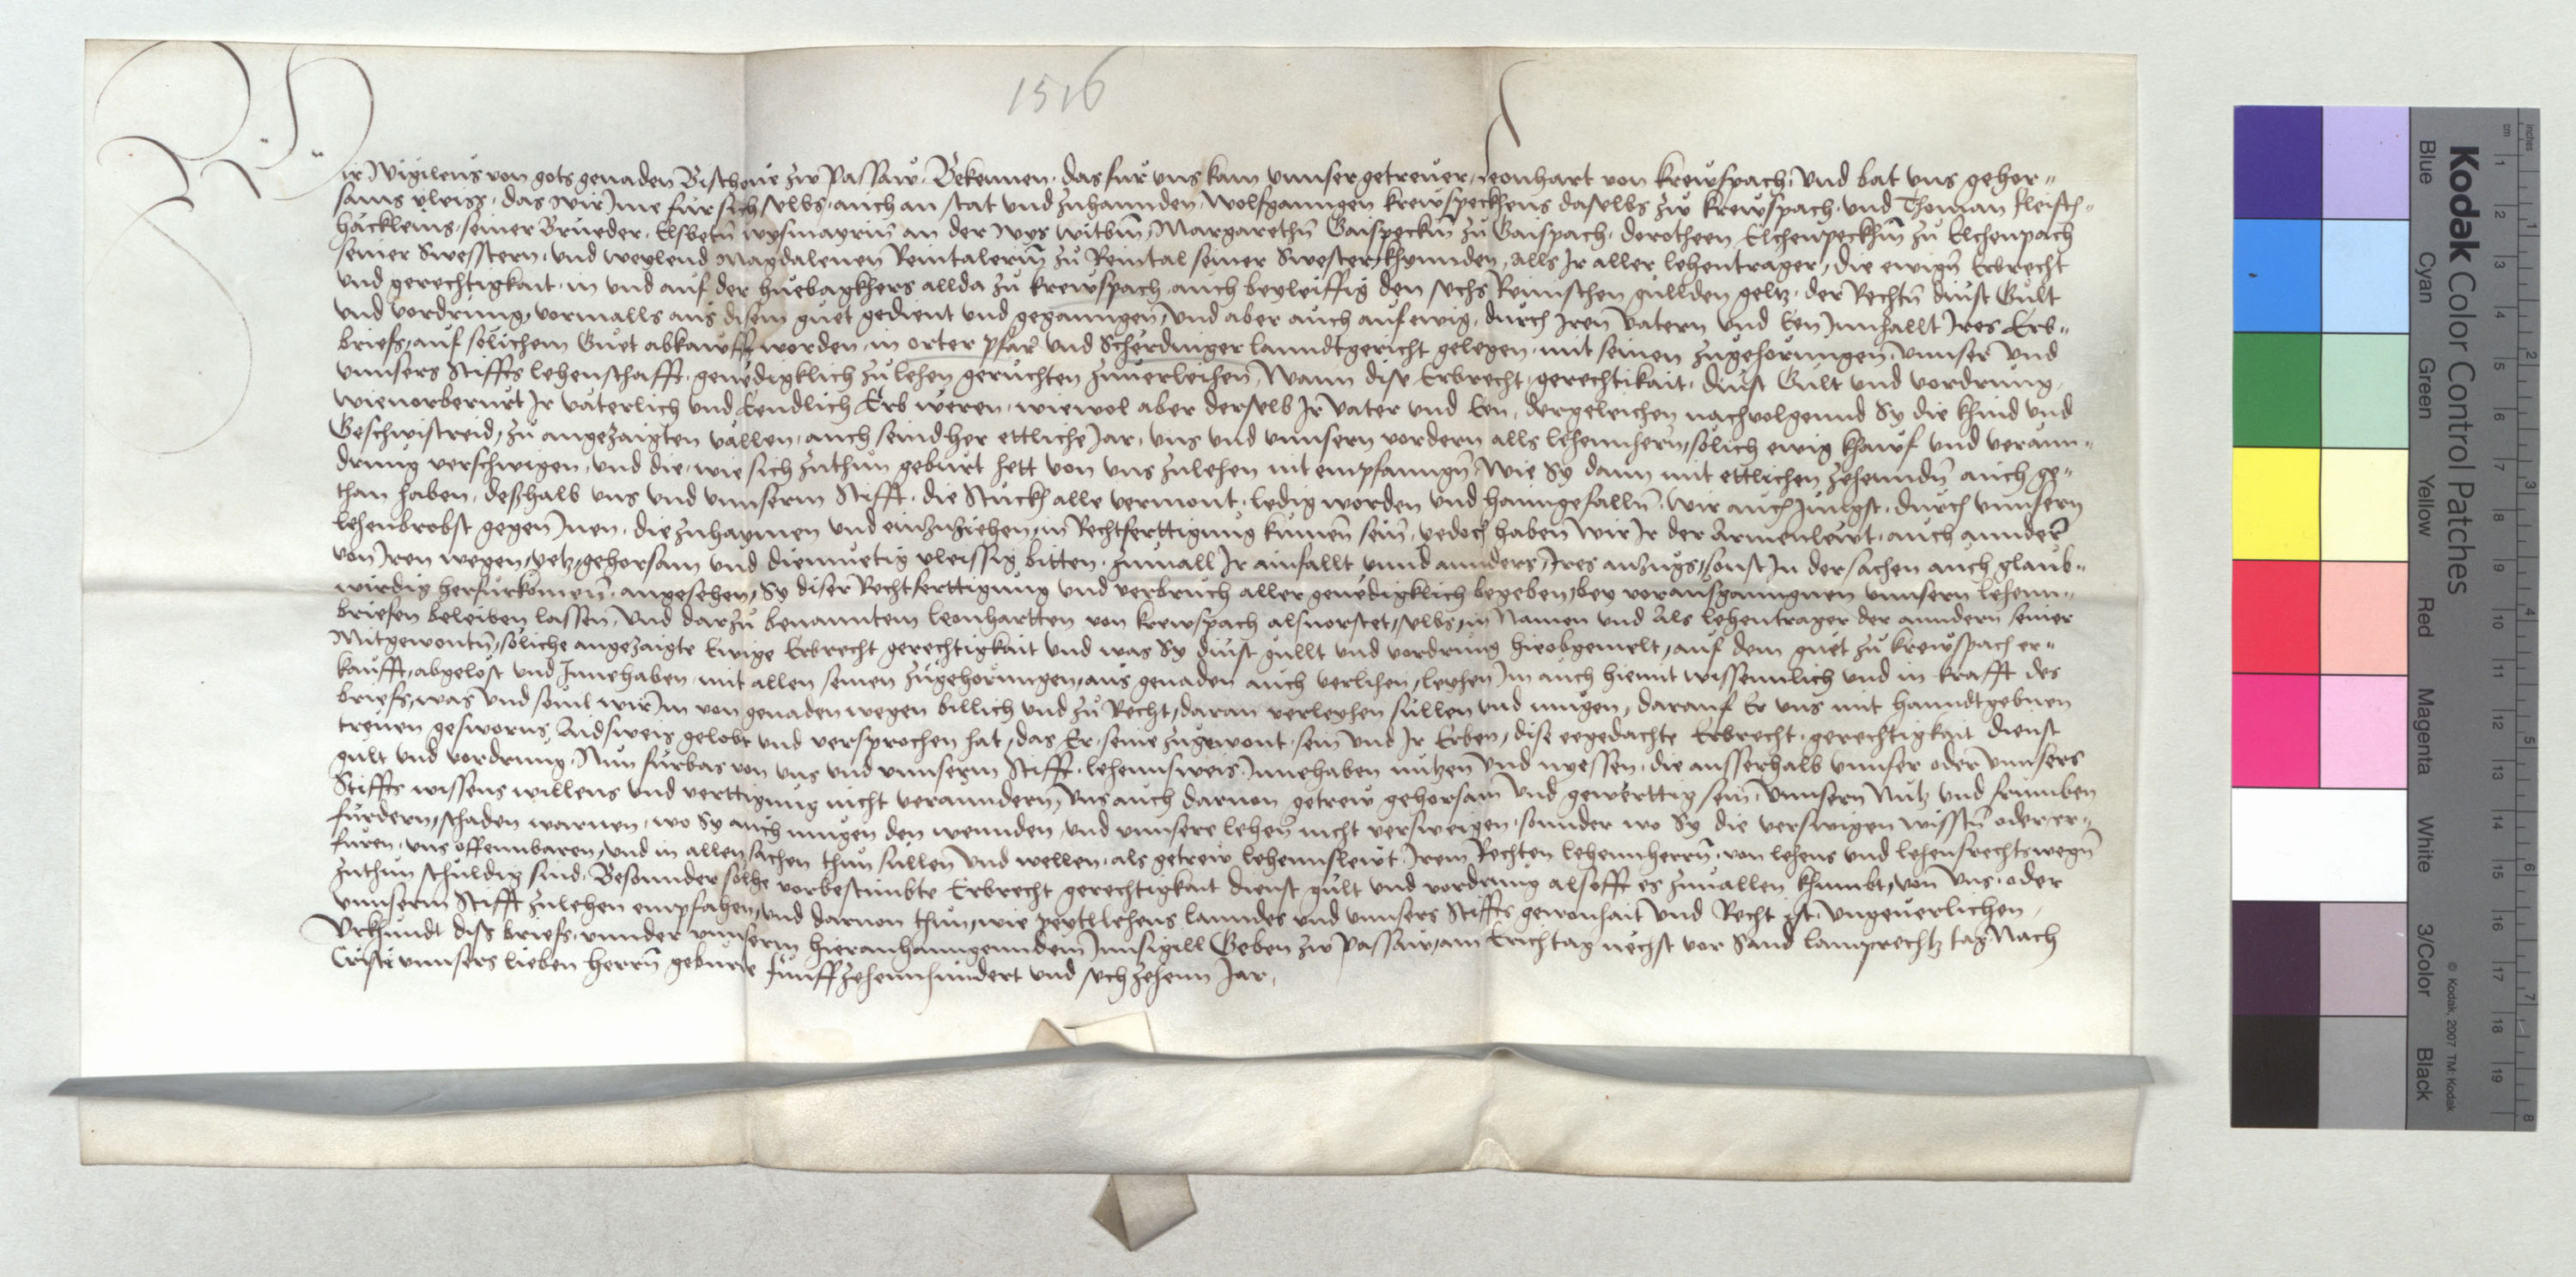 1516
Wir Wigileus von gots genaden Bischoue zw Passaw. Bekennen. das fur vns kam vnnser getreuer, Leonhart von Krewspach, Vnd bat vns gehor-
sams vleiss, das wir Ime fur sich selbs, auch an stat vnd zuhannden, Wolfganngen krewspeckhens daselbs zw krewspach, vnd Thoman fleisch-
häckleins, seiner Brueder, Elsbetn wysmayrin an der wys witbin, Margarethn Gaispeckin zu Gaispach, dorotheen Elchenpeckhin zu Elchenpach
seiner Swesstern, vnd weylend Magdalenen Reintalerin zu Reintal seiner Swester khynnden, alls Ir aller lehentrager, die ewign Erbrecht
vnd gerechtigkait, in vnd auf der huebagkhers allda zu krewspach, auch beyleiffig den sechs Reinischen gullden geltz, der Rechtn dinst Gult
vnd vordrung, vormalls aus disem guet gedient vnd geganngen, Vnd aber auch auf ewig, durch Iren Vatern vnd Een Innhallt Ires Erb-
briefs, auf solichem Guet abkaufft worden, in orter pfar vnd Scherdinger lanndtgericht gelegen, mit seinen zugehorungen, Vnnser vnd
vnnsers Stiffts lehenschafft, genedigklich zu lehen geruchten zuuerleihen, Wann dise Erbrecht, gerechtikait, dinst Gult vnd vordrung,
wieuorberurt Ir väterlich vnd Eendlich Erb weren, wiewol aber derselb Ir Vater vnd Een, dergeleichen nachvolgennd Sy die khind vnd
Geschwistreid, zu angezaigten vällen, auch seindher ettliche Jar, vns vnd vnnsern vordern alls lehennhern, solich ewig khauf vnd verann-
drung verschwigen, vnd die, wie sich zuthun geburt hett von vns zulehen nit empfanngn, Wie Sy dann mit ettlichen zehenndn auch ge-
than haben, deßhalb vns vnd vnnserm Stifft, die Stuckh alle vermont, ledig worden vnd haimgefalln, wir auch Jungst, durch vnnsern
lehenbrobst gegen Inen, die zuhaymen vnd einzuziehen, in Rechtferttigung kumen sein, yedoch haben wir Ir der Armenlewt, auch annder
von Iren wegen, yetz, gehorsam vnd diemuetig vleissig bitten, zuuall Ir ainfallt vnnd annders, Ires anzugs, sonst In der sachen auch glaub-
wirdig herfurkomen, angesehen, Sy diser Rechtferttigung vnd verbruch aller genedigklich begeben, bey vorausganngnen vnnsern lehenn-
briefen beleiben lassen, Vnd darzu benanntem Leonhartten von krewspach alsuorstet, selbs, in Namen vnd Als lehentrager der anndern seiner
Mitgewontn, soliche angezaigte Ewige Erbrecht gerechtigkait vnd was Sy dinst gullt vnd vordrung hieobgemelt, auf dem guet zu krewspach er-
kaufft, abgelost vnd Innehaben, mit allen seinen zugehorungen, aus genaden auch verlihen, leyhen Im auch hiemit wissenntlich vnd in krafft des
briefs, was vnd souil wir Im von genaden wegen billich vnd zu Recht, daran verleyhen sullen vnd mugen, darauf Er vns mit hanndtgebnen
treuen gesworns Aidsweis gelobt vnd versprochen hat, das Er, seine zugewont, sein vnd Ir Erben, dise eegedachte Erbrecht, gerechtigkait dienst
gult vnd vordrung, Nun furbas von vns vnd vnnserm Stifft, lehennsweis Innehaben nutzen vnd nyessen, die ausserhalb vnnser oder vnnsers
Stiffts wissens willens vnd verttigung nicht veranndern, Vns auch daruon getrew gehorsam vnd gewerttig sein, Vnnsern Nutz vnd frumben
furdern, schaden warnen, wo Sy auch mugen den wennden, vnd vnnsere lehen nicht versweigen, sonnder wo Sy die verswigen wisstn oder er-
furen, vns offennbaren, vnd in allen sachen thun sullen vnd wellen, als getrew lehennslewt Irem Rechten lehennherrn, von lehens vnd lehensrechtswegn
zuthun schuldig sind, Besonnder solhe vorbestimbte Erbrecht gerechtigkait dienst gult vnd vordrung alsofft es zuuallen khumbt, von vns oder
vnnserm Stifft zulehen empfahen, vnd daruon thun, wie peytllehens lanndes vnd vnnsers Stiffts gewonhait vnd Recht ist, Vngeuerlichen,
Vrkhundt diss briefs, vnnder vnnserm hieranhanngenndem Innsigill Geben zw Passaw, am Erichtag nechst vor Sand Lamprechtz tag Nach
Cristi vnnsers lieben herrn geburde funffzehennhundert vnd sechzehenn Jar,
Kodak Color Control Patches
Blue Cyan Green Yellow Red Magenta White 3/Color Black
© Kodak, 2007 TM: Kodak
inches 1 2 3 4 5 6 7 8
cm 1 2 3 4 5 6 7 8 9 10 11 12 13 14 15 16 17 18 19